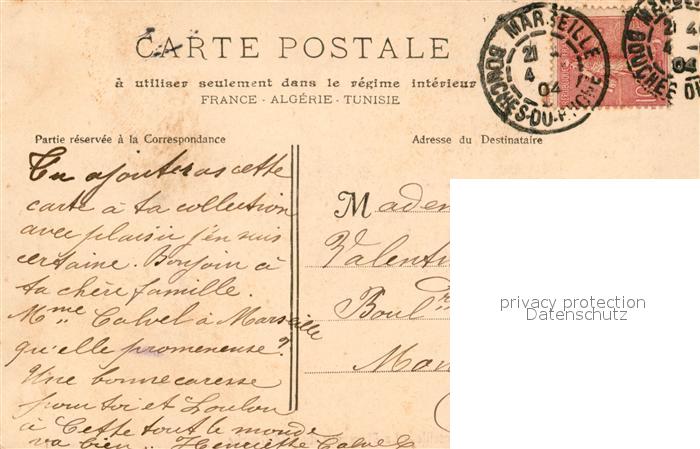 CARTE POSTALE
à utiliser seulement dans le régime intérieur
FRANCE - ALGÉRIE - TUNISIE
MARSEILLE
21
4
04
BOUCHES-DU-RHONE
Partie réservée à la Correspondance
Adresse du Destinataire
Tu ajouteras cette
carte à ta collection
avec plaisir j'en suis
certaine. Bonjour à
ta chère famille.
Mme Calvel à Marseille
qu'elle promeneuse?
Une bonne caresse
pour toi et Loulou
à Cette tout le monde
va bien .. Henriette Calvel
Madem
Valenti
Boul
Mon
privacy protection
Datenschutz